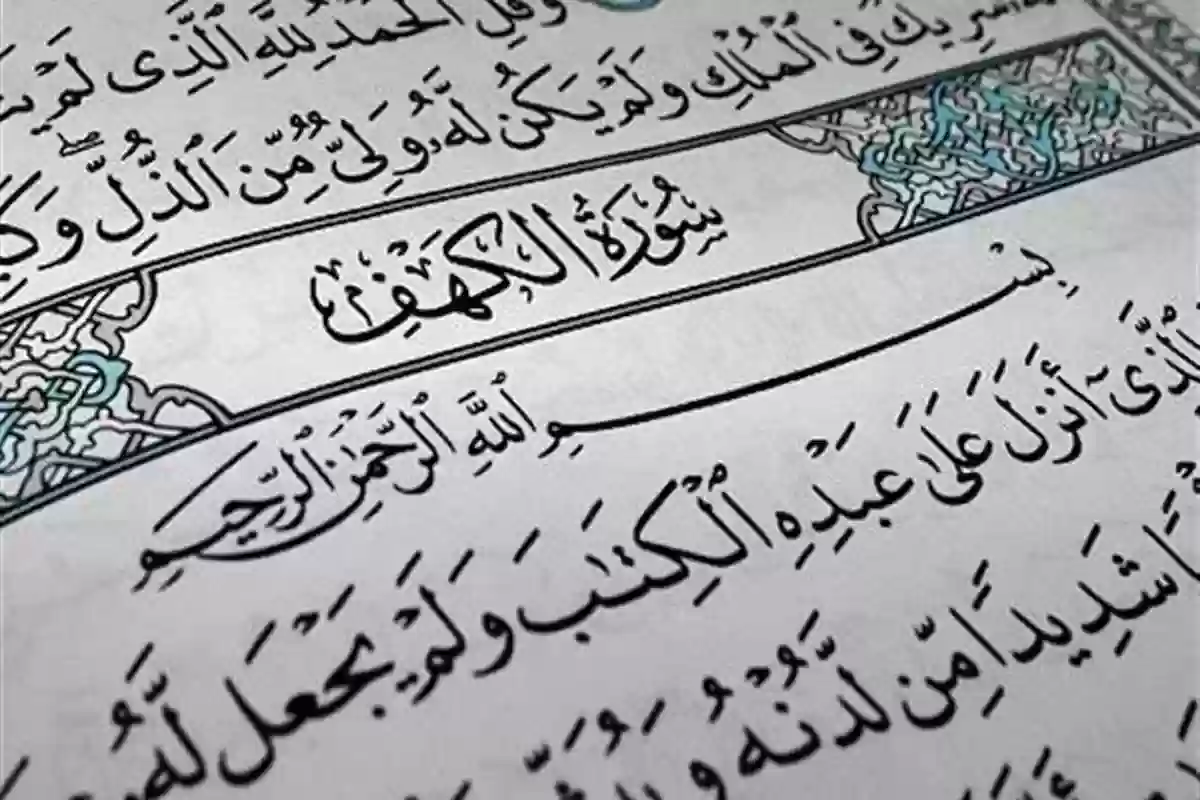 وَقُلِ ٱلْحَمْدُ لِلَّهِ ٱلَّذِى لَمْ
شَرِيكٌ فِى ٱلْمُلْكِ وَلَمْ يَكُن لَّهُۥ وَلِىٌّ مِّنَ ٱلذُّلِّ ۖ
سُورَةُ الكَهْفِ
بِسْمِ ٱللَّهِ ٱلرَّحْمَٰنِ ٱلرَّحِيمِ
ٱلَّذِىٓ أَنزَلَ عَلَىٰ عَبْدِهِ ٱلْكِتَٰبَ وَلَمْ يَجْعَل لَّهُۥ
شَدِيدًا مِّن لَّدُنْهُ